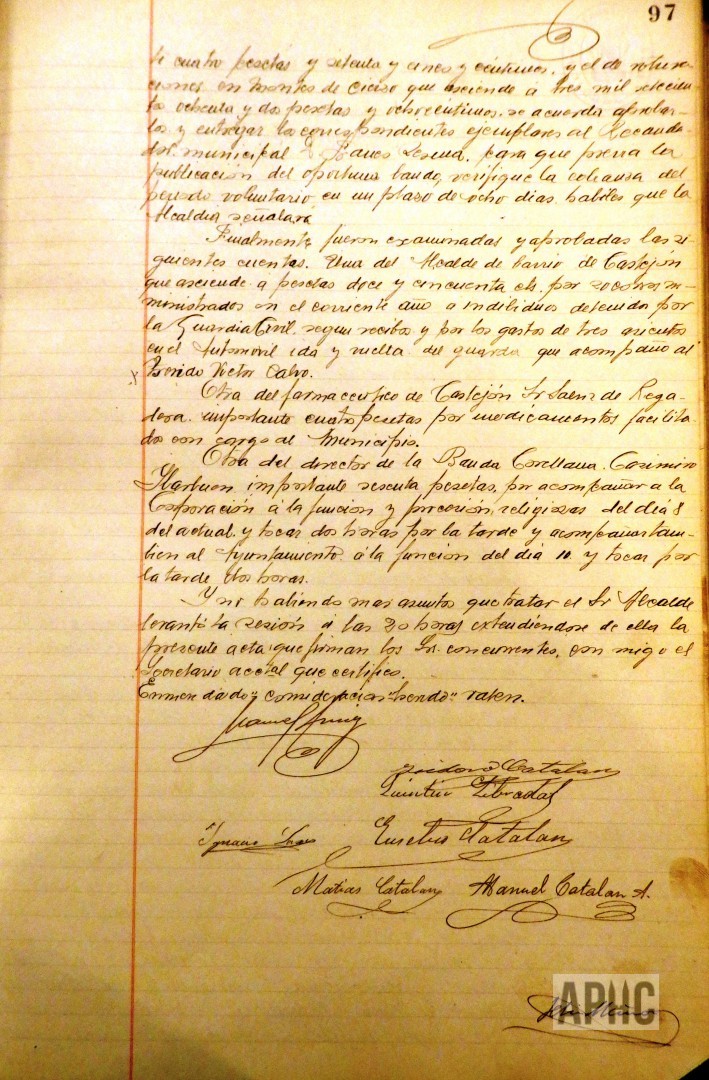 97
ti cuatro pesetas y setenta y cinco y céntimos, y el de rotura-
ciones en montes de Cierzo que asciende a tres mil setecien-
to ochenta y dos pesetas y ocho céntimos, se acuerda aprobar-
los y entregar los correspondientes ejemplares al Recauda-
dor municipal Sr Lerena, para que previa la
publicación del oportuno bando, verifique la cobranza del
periodo voluntario en un plazo de ocho dias habiles que la
Alcaldia señalará.
Finalmente fueron examinadas y aprobadas las si-
guientes cuentas. Una del Alcalde de barrio de Castejon
que asciende a pesetas doce y cincuenta cts. por socorros su-
ministrados en el corriente año a individuos detenidos por
la Guardia Civil segun recibos y por los gastos de tres asientos
en el Automovil ida y vuelta del guarda que acompañó al
herido Victor Calvo.
Otra del farmaceutico de Castejón Sr Saenz de Rega-
dera importante cuatro pesetas por medicamentos facilita-
dos con cargo al Municipio.
Otra del director de la Banda Corellana Casimiro
importante sesenta pesetas, por acompañar a la
Corporación á la funcion y procesion religiosas del dia 8
del actual y tocar dos horas por la tarde y acompañar tam-
bien al Ayuntamiento á la funcion del dia 10 y tocar por
la tarde dos horas.
Y no habiendo mas asuntos que tratar el Sr Alcalde
levantó la sesión a las 20 horas extendiendose de ella la
presente acta que firman los Sr. concurrentes, con migo el
Secretario acctal que certifico.
Enmendado " "herido" valen.
Isidoro Catalan
Quintin Librada
Ignacio
Eusebio Catalan
Matias Catalan
Manuel Catalan A.